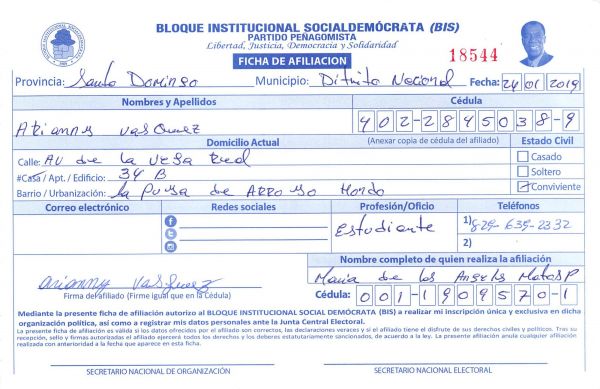 BLOQUE INSTITUCIONAL SOCIALDEMÓCRATA (BIS)
PARTIDO PEÑAGOMISTA
Libertad, Justicia, Democracia y Solidaridad
FICHA DE AFILIACION
18544
Provincia: Santo Domingo Municipio: Ditrito Nacional Fecha: 24/01/2019
Nombres y Apellidos Cédula
Arianny vasquez 402-2845038-9
Domicilio Actual (Anexar copia de cédula del afiliado) Estado Civil
Calle: AV de la vega Real Casado
#Casa / Apt. / Edificio: 34 B Soltero
Barrio / Urbanización: la de Arroyo Hondo Conviviente
Correo electrónico Redes sociales Profesión/Oficio Teléfonos
Estudiante 1) 829-639-2332
2)
Nombre completo de quien realiza la afiliación
Maria de los Angeles Matos P
arianny vasquez
Firma del afiliado (Firme igual que en la Cédula) Cédula: 001-1909570-1
Mediante la presente ficha de afiliación autorizo al BLOQUE INSTITUCIONAL SOCIAL DEMÓCRATA (BIS) a realizar mi inscripción única y exclusiva en dicha
organización política, así como a registrar mis datos personales ante la Junta Central Electoral.
La presente afiliación es válida si los datos ofrecidos por el afiliado son correctos, las declaraciones veraces y si el afiliado tiene el disfrute de sus derechos civiles y políticos. Tras su
recepción, sello y firmas autorizadas el afiliado ejercerá todos los derechos y los deberes estatutariamente sancionados, de acuerdo a la ley. La presente afiliación anula cualquier afiliación
realizada con anterioridad a la fecha que aparece en esta ficha.
SECRETARIO NACIONAL DE ORGANIZACIÓN SECRETARIO NACIONAL ELECTORAL